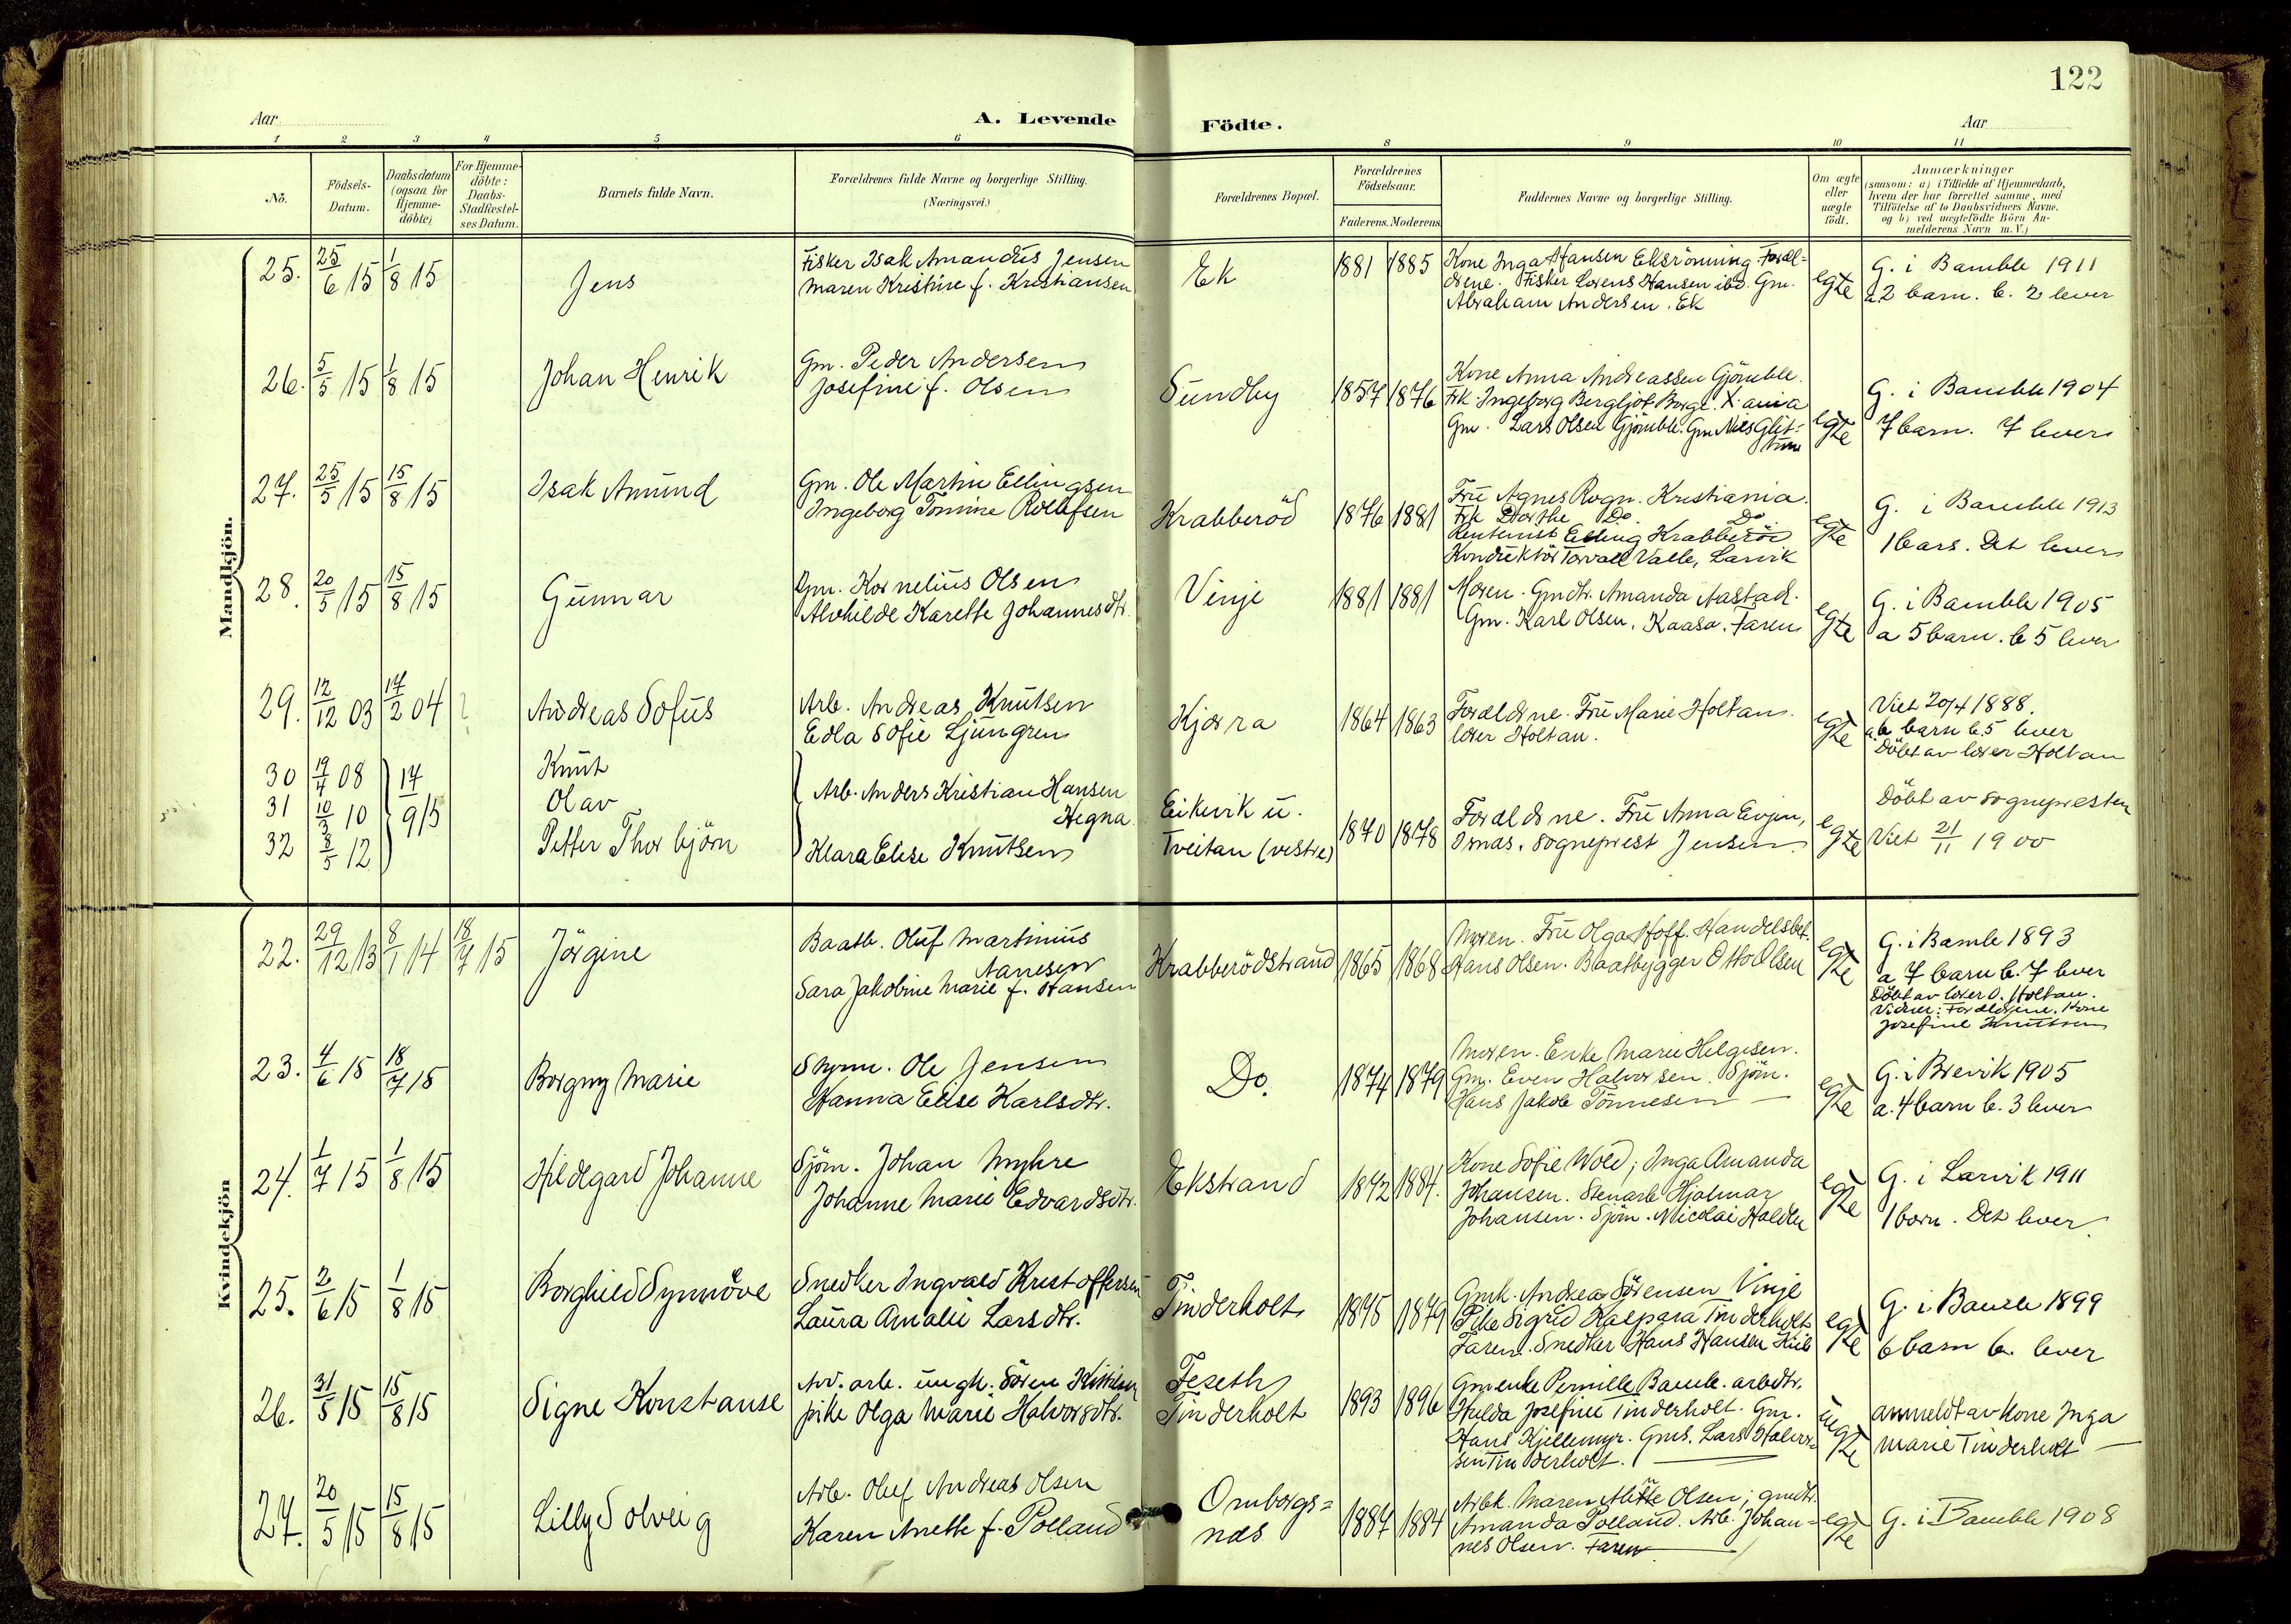 122
Aar
A. Levende
Födte.
Aar
1 2 3 4 5 6 8 9 10 11
No.
Födsels-Datum.
Daabsdatum (ogsaa for Hjemme-döbte)
For Hjemme-döbte: Daabs-Stadfæstel-ses Datum.
Barnets fulde Navn.
Forældrenes fulde Navne og borgerlige Stilling. (Næringsvei.)
Forældrenes Bopæl.
Forældrenes Födselsaar.
Faderens. Moderens
Faddernes Navne og borgerlige Stilling.
Om ægte eller uægte födt.
Anmærkninger
(saasom: a) i Tilfælde af Hjemmedaab, hvem der har forrettet samme, med Tilföielse af to Daabsvidners Navne. og b) ved uægtefödte Börn An-melderens Navn m. V.)
Mandkjön.
25. 25/6 15 1/8 15 Jens
Fisker Isak Amandus Jensen
Maren Kristine f. Kristiansen
Ek 1881 1885
Kone Inga Hansen Eksrönning. Foræl-
drene. Fisker Lorens Hansen ibd. Gm.
Abraham Andersen. Ek
egte
G. i Bamble 1911
a. 2 barn. b. 2 lever
26. 5/5 15 1/8 15 Johan Henrik
Gm. Peder Andersen
Josefine f. Olsen
Sundby 1857 1876
Kone Anna Andreassen Gjömble.
Frk. Ingeborg Bergljot Borge. X.ania
Gm. Lars Olsen Gjömble. Gm Nils Glit-
tum
egte
G. i Bamble 1904
7 barn. 7 lever
27. 25/5 15 15/8 15 Isak Amund
Gm. Ole Martin Ellingsen
Ingeborg Tomine Rollefsen
Krabberöd 1876 1881
Fru Agnes Rogn. Kristiania.
Frk Dorthe Do. Do
Rentenist Elling Krabberöd
Konduktör Torvald Valle, Larvik
egte
G. i Bamble 1913
1 barn. Det lever
28. 20/5 15 15/8 15 Gunnar
Gm. Kornelius Olsen
Alvhilde Karette Johannesdtr.
Vinje 1881 1881
Moren. Gmdtr. Amanda Aastad.
Gm. Karl Olsen, Kaasa. Faren
egte
G. i Bamble 1905
a 5 barn. b 5 lever
29. 12/12 03 14/2 04 Andreas Sofus
Arb. Andreas Knutsen
Edla Sofie Ljungren
Kjörra 1864 1863
Forældrene. Fru Marie Holtan.
lærer Holtan.
egte
Viet 20/4 1888.
a. 6 barn b. 5 lever
Döbt av lærer Holtan
30 19/4 08 Knut
31 10/3 10 Olav
32 8/5 12 Petter Thorbjörn
14/9 15
Arb. Anders Kristian Hansen
Hegna
Klara Elise Knutsen
Eikvik u.
Tveitan (vestre)
1870 1878
Forældrene. Fru Anna Evjen,
Ornæs. Sogneprest Jensen
egte
Döbt av sognepresten
Viet 21/11 1900
Kvindekjön
22. 29/12 13 8/1 14 18/7 15 Jörgine
Baatb. Oluf Martinius
Aanesen
Sara Jakobine Marie f. Hansen
Krabberödstrand 1865 1868
Moren. Fru Olga Hoff. Handelsbet.
Hans Olsen. Baatbygger Otto Olsen
egte
G. i Bamle 1893
a. 7 barn b. 7 lever
Döbt av lærer O. Holtan.
Vidner: Forældrene. Kone
Josefine Knutsen
23. 4/6 15 18/7 15 Borgny Marie
Styrm. Ole Jensen
Hanna Elise Karlsdtr.
Do. 1874 1879
Moren. Enke Marie Helgesen.
Gm. Even Halvorsen. Sjöm.
Hans Jakob Tönnesen
egte
G. i Brevik 1905
a. 4 barn b. 3 lever
24. 1/7 15 1/8 15 Hildegard Johanne
Sjöm. Johan Myhre
Johanne Marie Edvardsdtr.
Ekstrand 1872 1884.
Kone Sofie Wold; Inga Amanda
Johansen. Stenarb Hjalmar
Johansen. Sjöm. Nicolai Halden
egte
G. i Larvik 1911
1 barn. Det lever.
25. 2/6 15 1/8 15 Borghild Synnöve
Snedker Ingvald Kristoffersen
Laura Amalie Larsdtr.
Tinderholt 1875 1879
Gmk. Andrea Sörensen Vinje
Pike Sigrid Kaspara Tinderholt
Faren. Snedker Hans Hansen
egte
G. i Bamle 1899
6 barn 6. lever
26. 31/5 15 15/8 15 Signe Konstanse
Arb. ungk. Sören Kittilsen
pike Olga Marie Halvorsdtr.
Feseth
Tinderholt
1893 1896
Gmenke Pernille Bamle. arbdtr.
Hulda Josefine Tinderholt. Gm.
Hans Kjellemyr. Gms. Lars Halvor-
sen Tinderholt.
uegte
anmeldt av kone Inga
Marie Tinderholt
27. 20/5 15 15/8 15 Lilly Solveig
Arb. Oluf Andreas Olsen
Karen Anette f. Polland
Omborgs=
næs
1887 1884
Arbk. Maren Alette Olsen; gmdtr.
Amanda Polland. Arb. Johan-
nes Olsen. Faren
egte
G. i Bamble 1908